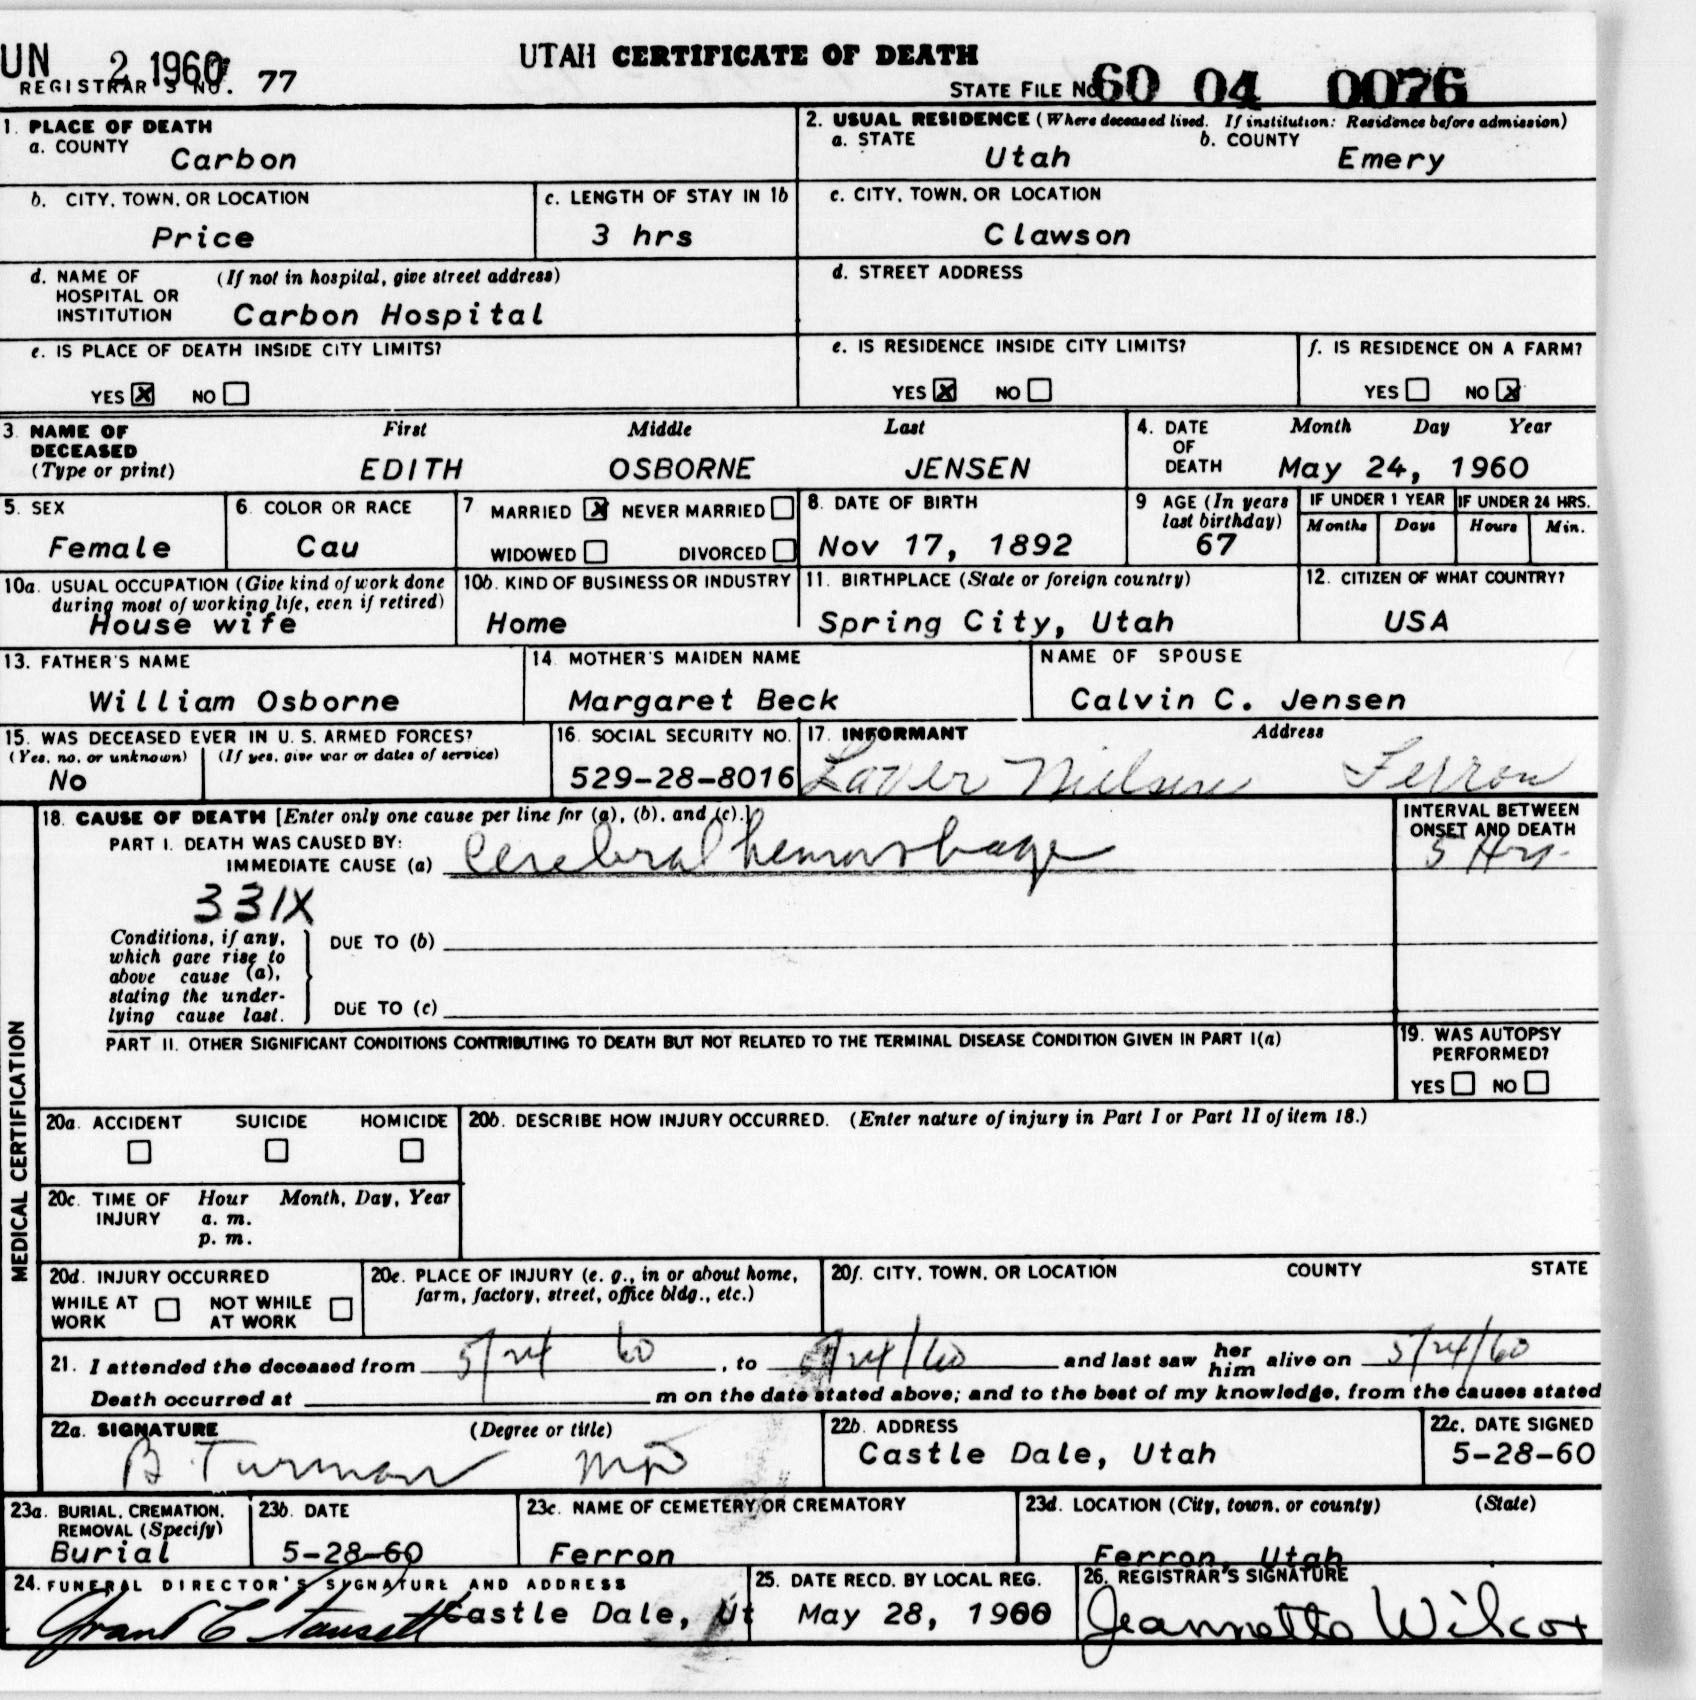 UN 2 1960
UTAH CERTIFICATE OF DEATH
REGISTRAR'S NO. 77
STATE FILE No 60 04 0076
1. PLACE OF DEATH
a. COUNTY Carbon
2. USUAL RESIDENCE (Where deceased lived. If institution: Residence before admission)
a. STATE Utah b. COUNTY Emery
b. CITY, TOWN, OR LOCATION Price
c. LENGTH OF STAY IN 1b 3 hrs
c. CITY, TOWN, OR LOCATION Clawson
d. NAME OF HOSPITAL OR INSTITUTION (If not in hospital, give street address) Carbon Hospital
d. STREET ADDRESS
e. IS PLACE OF DEATH INSIDE CITY LIMITS?
YES X NO
e. IS RESIDENCE INSIDE CITY LIMITS?
YES X NO
f. IS RESIDENCE ON A FARM?
YES NO X
3. NAME OF DECEASED (Type or print)
First Middle Last
EDITH OSBORNE JENSEN
4. DATE OF DEATH
Month Day Year
May 24, 1960
5. SEX
Female
6. COLOR OR RACE
Cau
7 MARRIED X NEVER MARRIED
WIDOWED DIVORCED
8. DATE OF BIRTH
Nov 17, 1892
9 AGE (In years last birthday)
67
IF UNDER 1 YEAR
Months Days
IF UNDER 24 HRS.
Hours Min.
10a. USUAL OCCUPATION (Give kind of work done during most of working life, even if retired)
House wife
10b. KIND OF BUSINESS OR INDUSTRY
Home
11. BIRTHPLACE (State or foreign country)
Spring City, Utah
12. CITIZEN OF WHAT COUNTRY?
USA
13. FATHER'S NAME
William Osborne
14. MOTHER'S MAIDEN NAME
Margaret Beck
NAME OF SPOUSE
Calvin C. Jensen
15. WAS DECEASED EVER IN U. S. ARMED FORCES?
(Yes, no, or unknown) (If yes, give war or dates of service)
No
16. SOCIAL SECURITY NO.
529-28-8016
17. INFORMANT Address
Laver Nielsen Ferron
MEDICAL CERTIFICATION
18. CAUSE OF DEATH [Enter only one cause per line for (a), (b), and (c).]
PART I. DEATH WAS CAUSED BY:
IMMEDIATE CAUSE (a) Cerebral hemorrhage
INTERVAL BETWEEN ONSET AND DEATH
5 Hrs.
331X
Conditions, if any, which gave rise to above cause (a), stating the underlying cause last.
DUE TO (b)
DUE TO (c)
PART II. OTHER SIGNIFICANT CONDITIONS CONTRIBUTING TO DEATH BUT NOT RELATED TO THE TERMINAL DISEASE CONDITION GIVEN IN PART I(a)
19. WAS AUTOPSY PERFORMED?
YES NO
20a. ACCIDENT SUICIDE HOMICIDE
20b. DESCRIBE HOW INJURY OCCURRED. (Enter nature of injury in Part I or Part II of item 18.)
20c. TIME OF INJURY Hour Month, Day, Year
a. m.
p. m.
20d. INJURY OCCURRED
WHILE AT WORK NOT WHILE AT WORK
20e. PLACE OF INJURY (e. g., in or about home, farm, factory, street, office bldg., etc.)
20f. CITY, TOWN, OR LOCATION COUNTY STATE
21. I attended the deceased from 5/24 60, to 5/24/60 and last saw her him alive on 5/24/60
Death occurred at m on the date stated above; and to the best of my knowledge, from the causes stated
22a. SIGNATURE (Degree or title)
B Turman MD
22b. ADDRESS
Castle Dale, Utah
22c. DATE SIGNED
5-28-60
23a. BURIAL, CREMATION, REMOVAL (Specify)
Burial
23b. DATE
5-28-60
23c. NAME OF CEMETERY OR CREMATORY
Ferron
23d. LOCATION (City, town, or county) (State)
Ferron, Utah
24. FUNERAL DIRECTOR'S SIGNATURE AND ADDRESS
Grant C Fausett Castle Dale, Ut
25. DATE RECD. BY LOCAL REG.
May 28, 1960
26. REGISTRAR'S SIGNATURE
Jeannette Wilcox